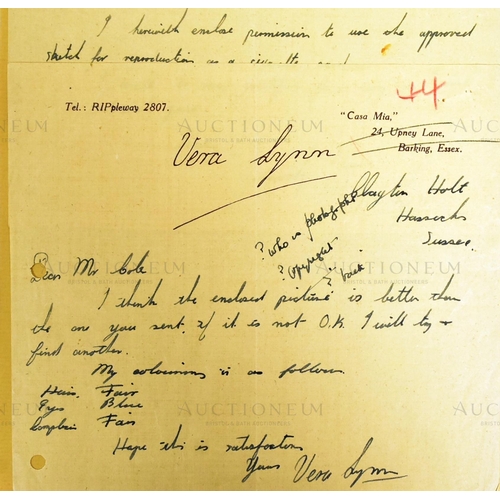 I herewith enclose permission to use the approved
sketch for reproduction as a
Tel.: RIPpleway 2807.
44.
"Casa Mia,"
24, Upney Lane,
Barking, Essex.
Vera Lynn
Clayton Holt
Hassocks
Sussex
? who is photographer
? copyright
? back
Dear Mr Cole
I think the enclosed picture is better than
the one you sent, if it is not O.K. I will try &
find another.
My colouring is as follows
Hair. Fair
Eyes Blue
Complexion Fair
Hope this is satisfactory
Yours Vera Lynn
AUCTIONEUM